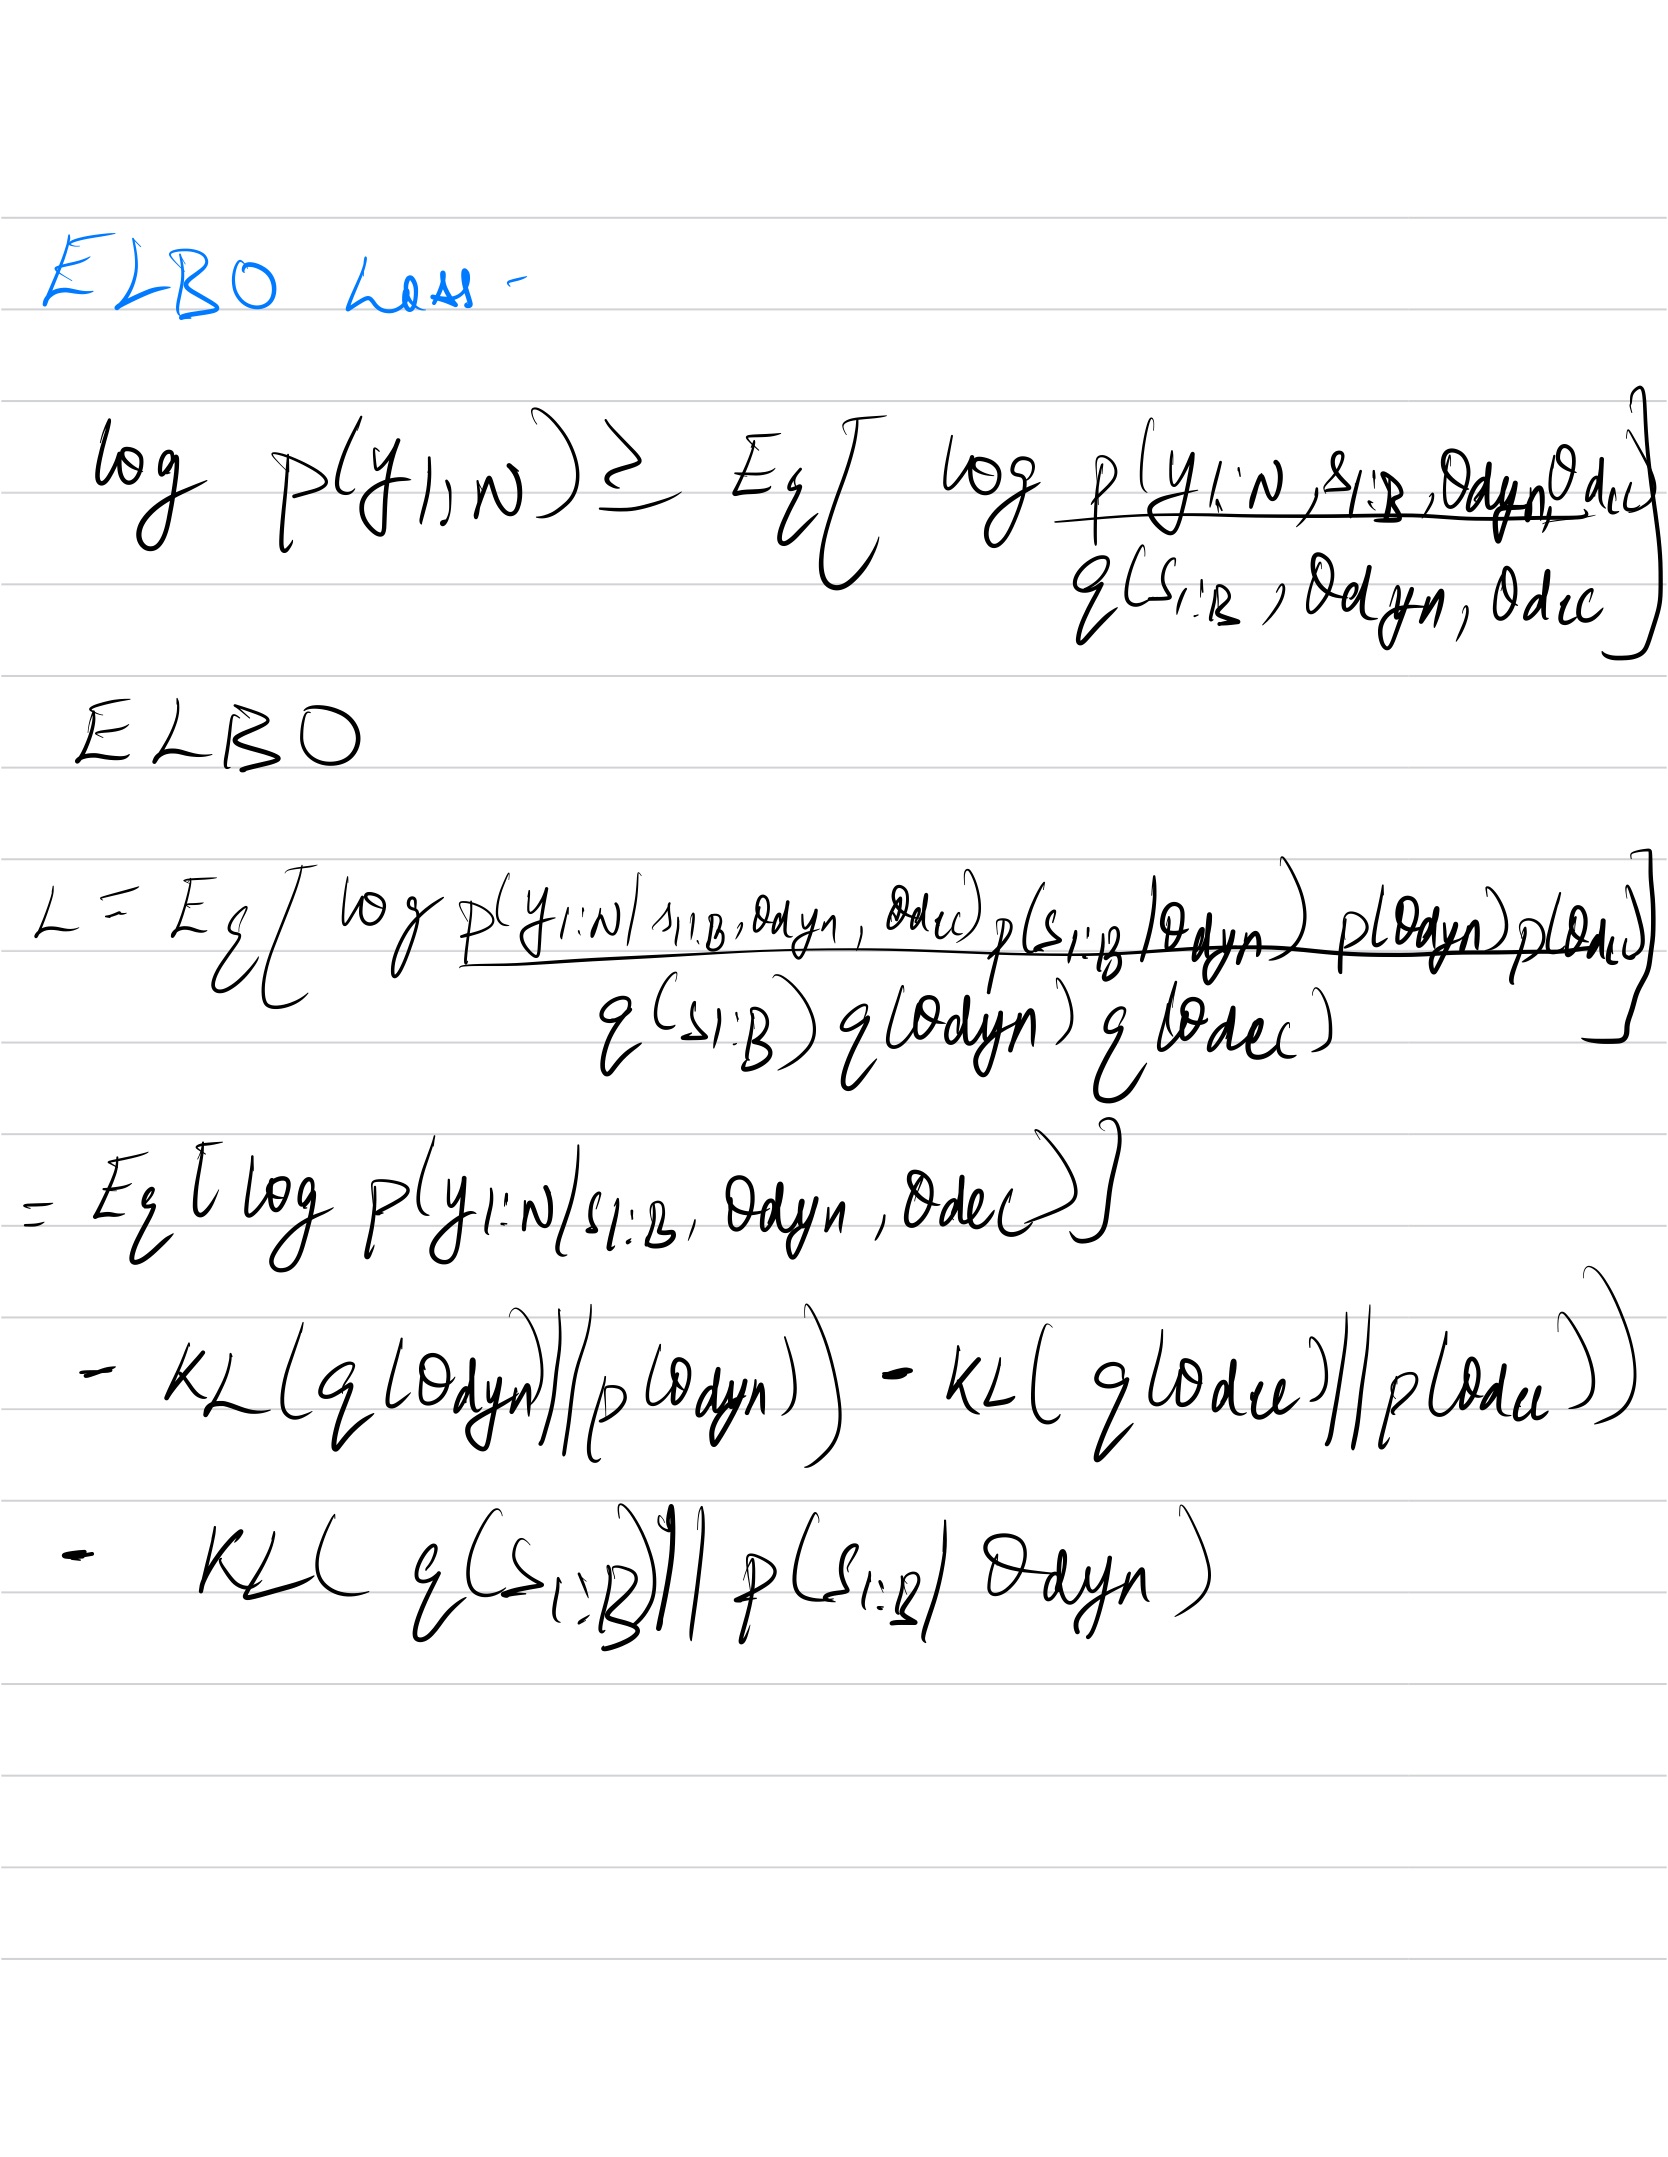 ELBO Loss -
log p(y1:N) ≥ Eq[ log p(y1:N, s1:B, θdyn, θdec)
q(s1:B, θdyn, θdec ]
ELBO
L = Eq[ log p(y1:N|s1:B, θdyn, θdec) p(s1:B|θdyn) p(θdyn) p(θdec) ]
q(s1:B) q(θdyn) q(θdec)
= Eq[ log p(y1:N|s1:B, θdyn, θdec)]
- KL(q(θdyn)||p(θdyn)) - KL(q(θdec)||p(θdec))
- KL( q(s1:B)|| p(s1:B| θdyn)